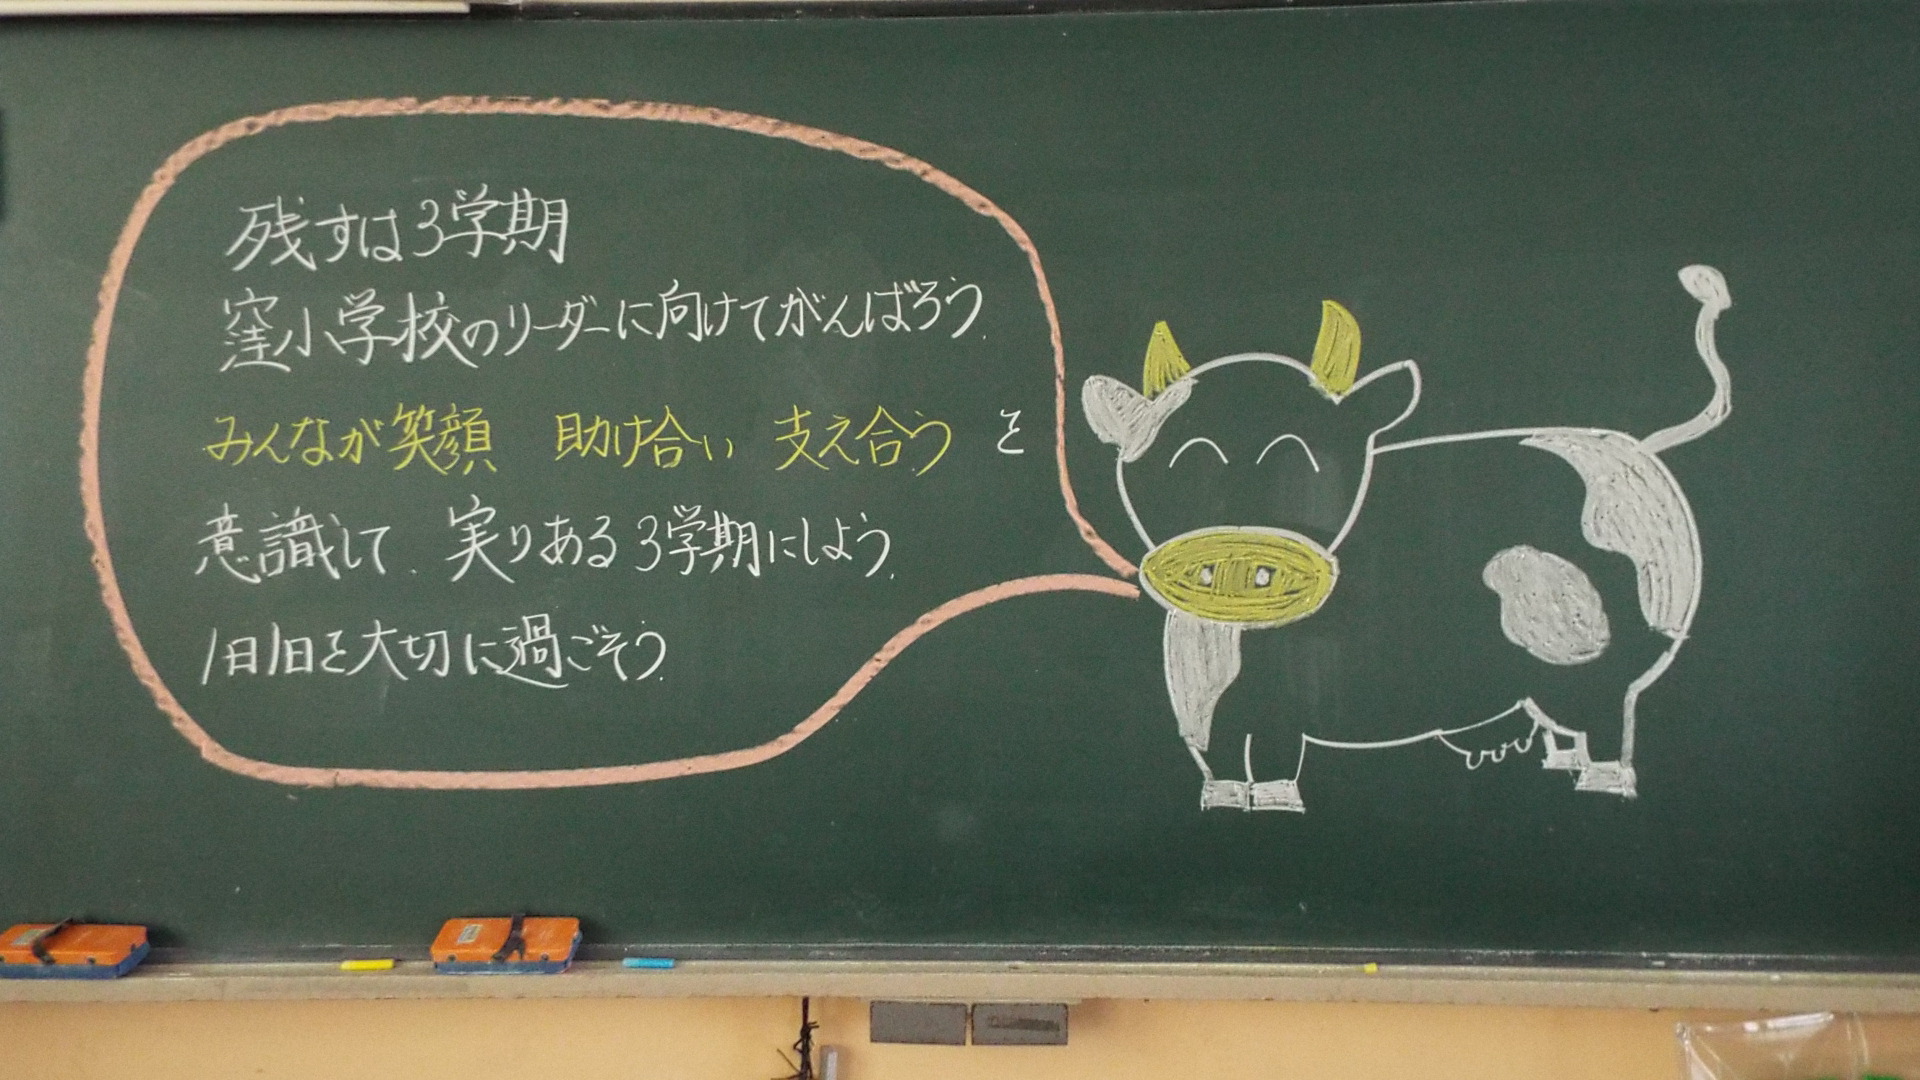 残すは3学期
窪小学校のリーダーに向けてがんばろう.
みんなが笑顔 助け合い 支え合う を
意識して. 実りある3学期にしよう.
1日1日を大切に過ごそう.